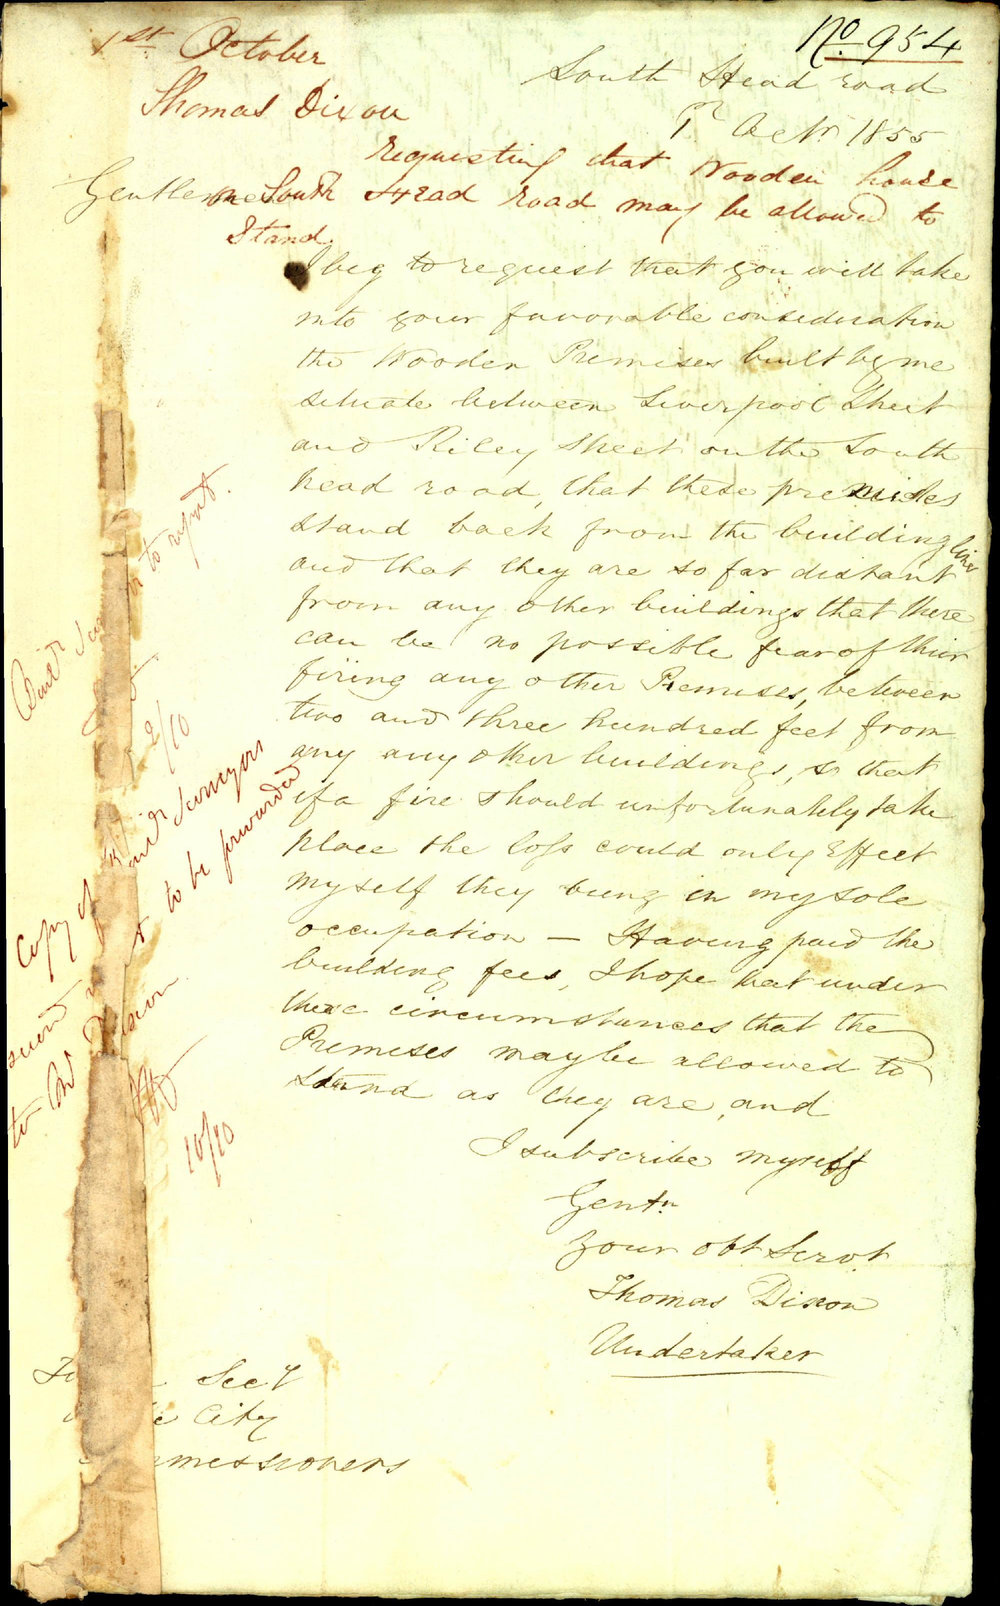 No. 954
1st October
Thomas Dixon
requesting that Wooden house
on South Head road may be allowed to
Stand.
South Head road
1st Octr. 1855
Gentlemen
I beg to request that you will take
into your favorable consideration
the Wooden Premises built by me
situate between Liverpool Street
and Riley Street on the South
head road, that these premises
stand back from the building line
and that they are so far distant
from any other buildings that there
can be no possible fear of their
firing any other Premises, between
two and three hundred feet from
any any other buildings, so that
if a fire should unfortunately take
place the loss could only Effect
myself they being in my sole
occupation — Having paid the
building fees, I hope that under
these circumstances that the
Premises may be allowed to
stand as they are, and
I subscribe myself
Gentn
Your obt Servt
Thomas Dixon
Undertaker
Secy
City
mmissioners
to report.
2/10
Copy of
Surveyors
to be forwarded
to Mr Dixon
10/10